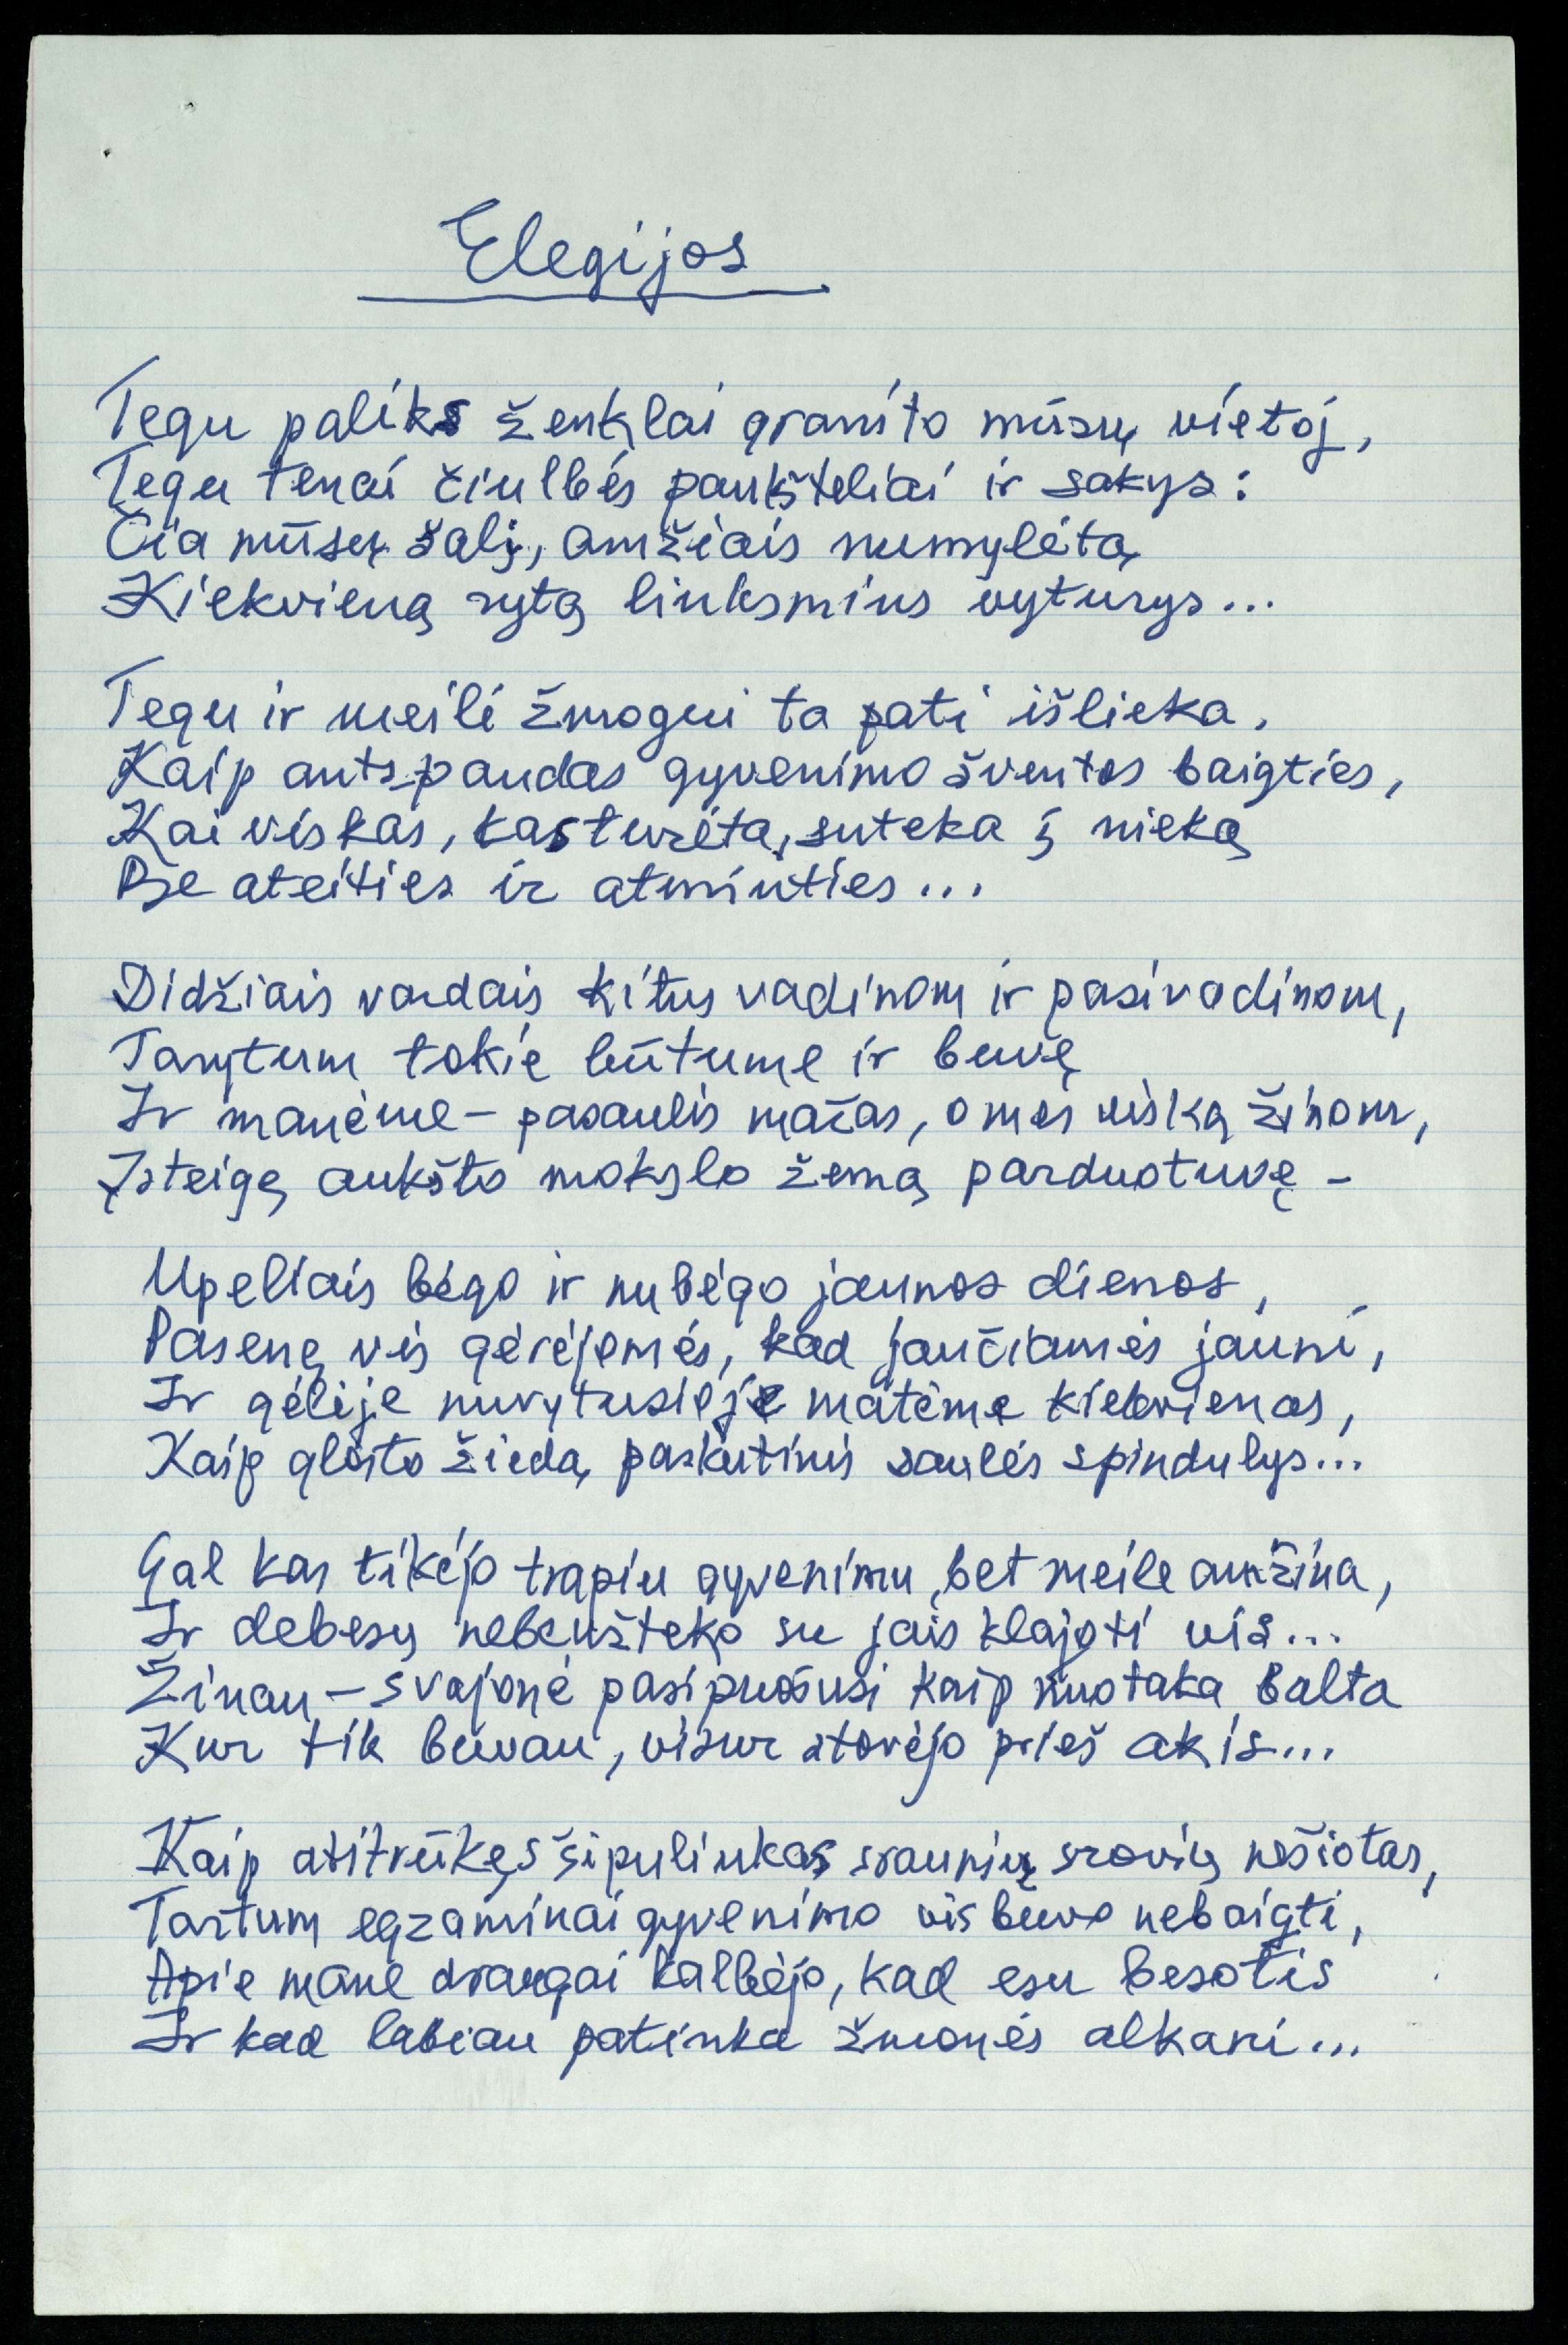 Elegijos
Tegu paliks ženklai granito mūsų vietoj,
Tegu tenai čiulbės paukšteliai ir sakys:
Čia mūsų šalį, amžiais numylėtą
Kiekvieną rytą linksmins vyturys...
Tegu ir meilė žmogui ta pati išlieka,
Kaip antspaudas gyvenimo šventos baigties,
Kai viskas, kas turėta, suteka į nieką
Be ateities ir atminties...
Didžiais vardais kitus vadinom ir pasivadinom,
Tarytum tokie būtume ir buvę
Ir manėme – pasaulis mažas, o mes viską žinom,
Įsteigę aukšto mokslo žemą parduotuvę –
Upeliais bėgo ir nubėgo jaunos dienos,
Pasenę vis gėrėjomės, kad jaučiamės jauni,
Ir gėlėje nuvytusioje matėme kiekvienas,
Kaip glosto žiedą paskutinis saulės spindulys...
Gal kas tikėjo trapiu gyvenimu, bet meile amžina,
Ir debesų nebeužteko su jais klajoti vis...
Žinau – svajonė pasipuošusi kaip nuotaka balta
Kur tik buvau, visur stovėjo prieš akis...
Kaip atitrūkęs šipuliukas sraunių srovių nešiotas,
Tartum egzaminai gyvenimo vis buvo nebaigti,
Apie mane draugai kalbėjo, kad esu besotis
Ir kad labiau patinka žmonės alkani...